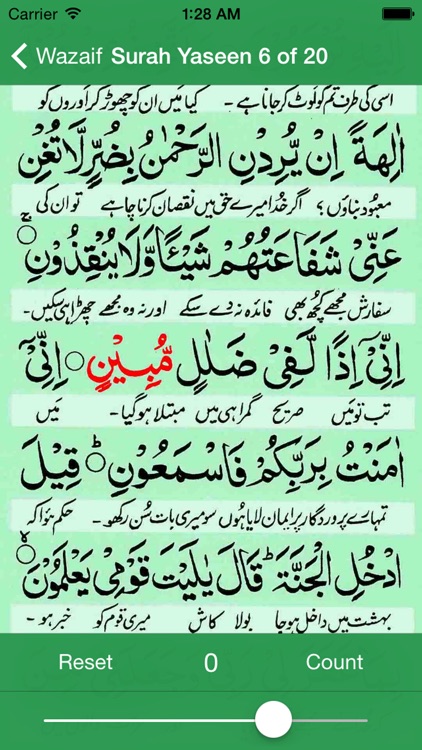 Carrier 1:28 AM
Wazaif Surah Yaseen 6 of 20
اسی کی طرف تم کو لوٹ کر جانا ہے - کیا میں ان کو چھوڑ کر اوروں کو
اٰلِهَةً اِنْ يُّرِدْنِ الرَّحْمٰنُ بِضُرٍّ لَّا تُغْنِ
معبود بناؤں؟ اگر خدا میرے حق میں نقصان کرنا چاہے تو ان کی
عَنِّيْ شَفَاعَتُهُمْ شَيْـًٔا وَّلَا يُنْقِذُوْنِ ۚ
سفارش مجھے کچھ بھی فائدہ نہ دے سکے اور نہ وہ مجھے چھڑا ہی سکیں -
اِنِّيْٓ اِذًا لَّفِيْ ضَلٰلٍ مُّبِيْنٍ ۝ اِنِّيْٓ
تب تو میں صریح گمراہی میں مبتلا ہو گیا - میں
اٰمَنْتُ بِرَبِّكُمْ فَاسْمَعُوْنِ ۝ؕ قِيْلَ
تمہارے پروردگار پر ایمان لایا ہوں سو میری بات سن رکھو - حکم ہوا کہ
ادْخُلِ الْجَنَّةَ ؕ قَالَ يٰلَيْتَ قَوْمِيْ يَعْلَمُوْنَ ۝ۙ
بہشت میں داخل ہو جا بولا کاش میری قوم کو خبر ہو -
Reset 0 Count